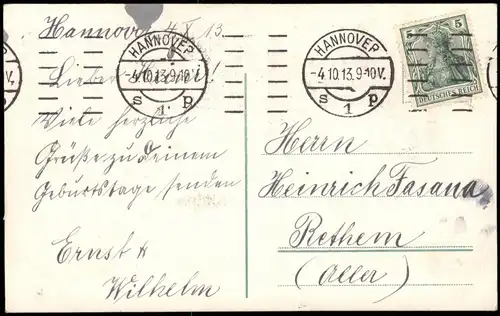 Hannover 4. X. 13.
HANNOVER
-4.10.13.9-10V.
s 1 p
HANNOVER
-4.10.13.9-10V.
s 1 p
5 5
DEUTSCHES REICH
Lieber
Viele herzliche
Grüße zu Deinem
Geburtstage senden
Ernst &
Wilhelm
Herrn
Heinrich Fasana
Rethem
(Aller)